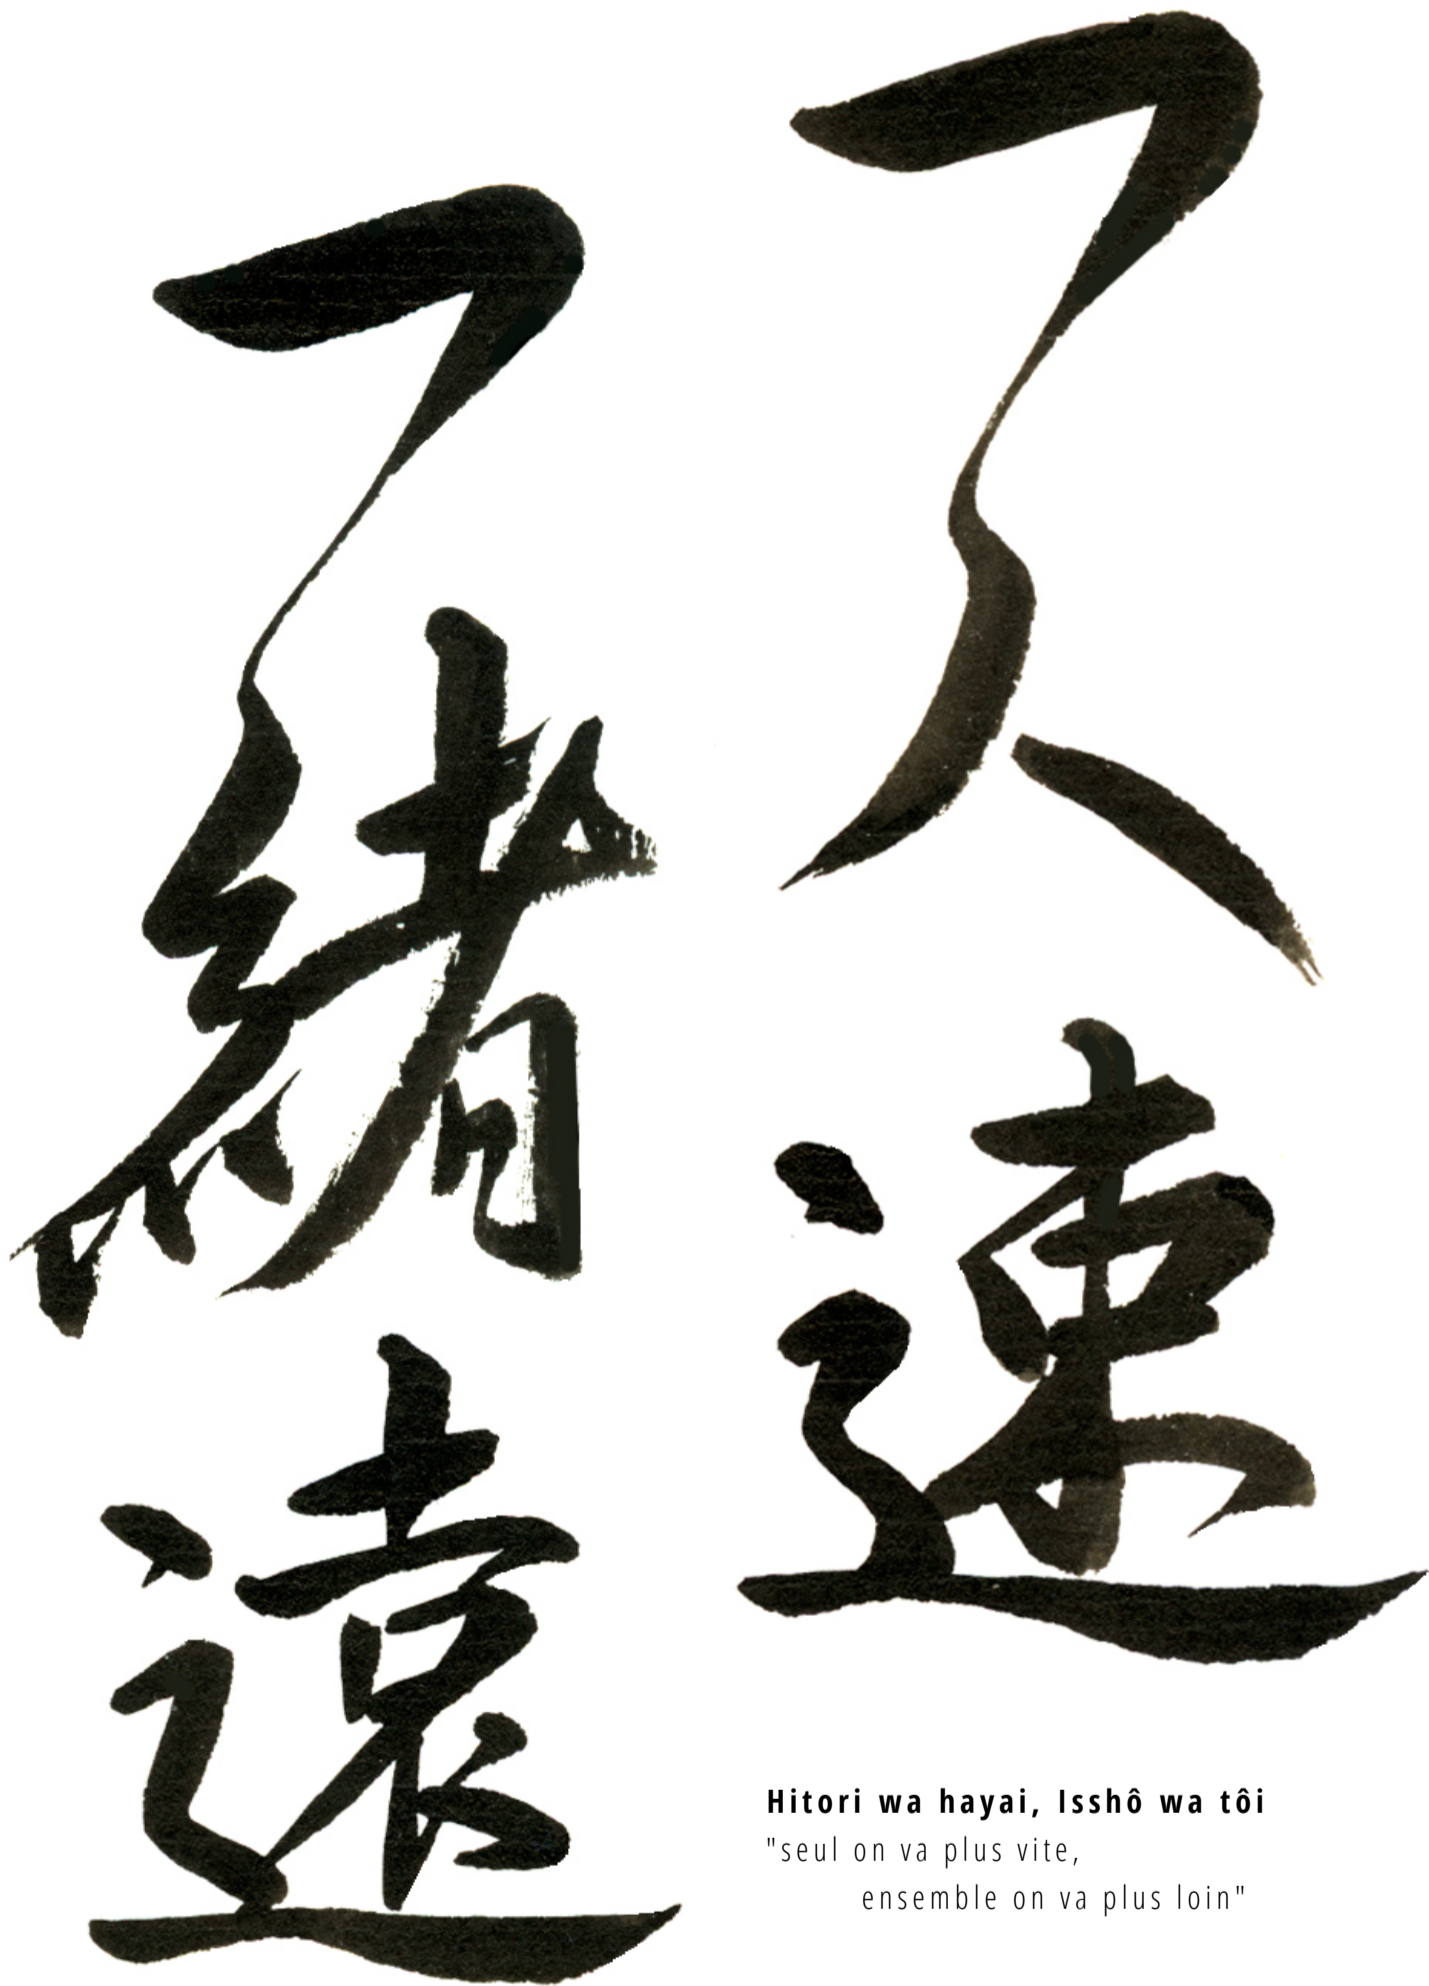 一人速
一緒遠
Hitori wa hayai, Isshô wa tôi
"seul on va plus vite,
ensemble on va plus loin"